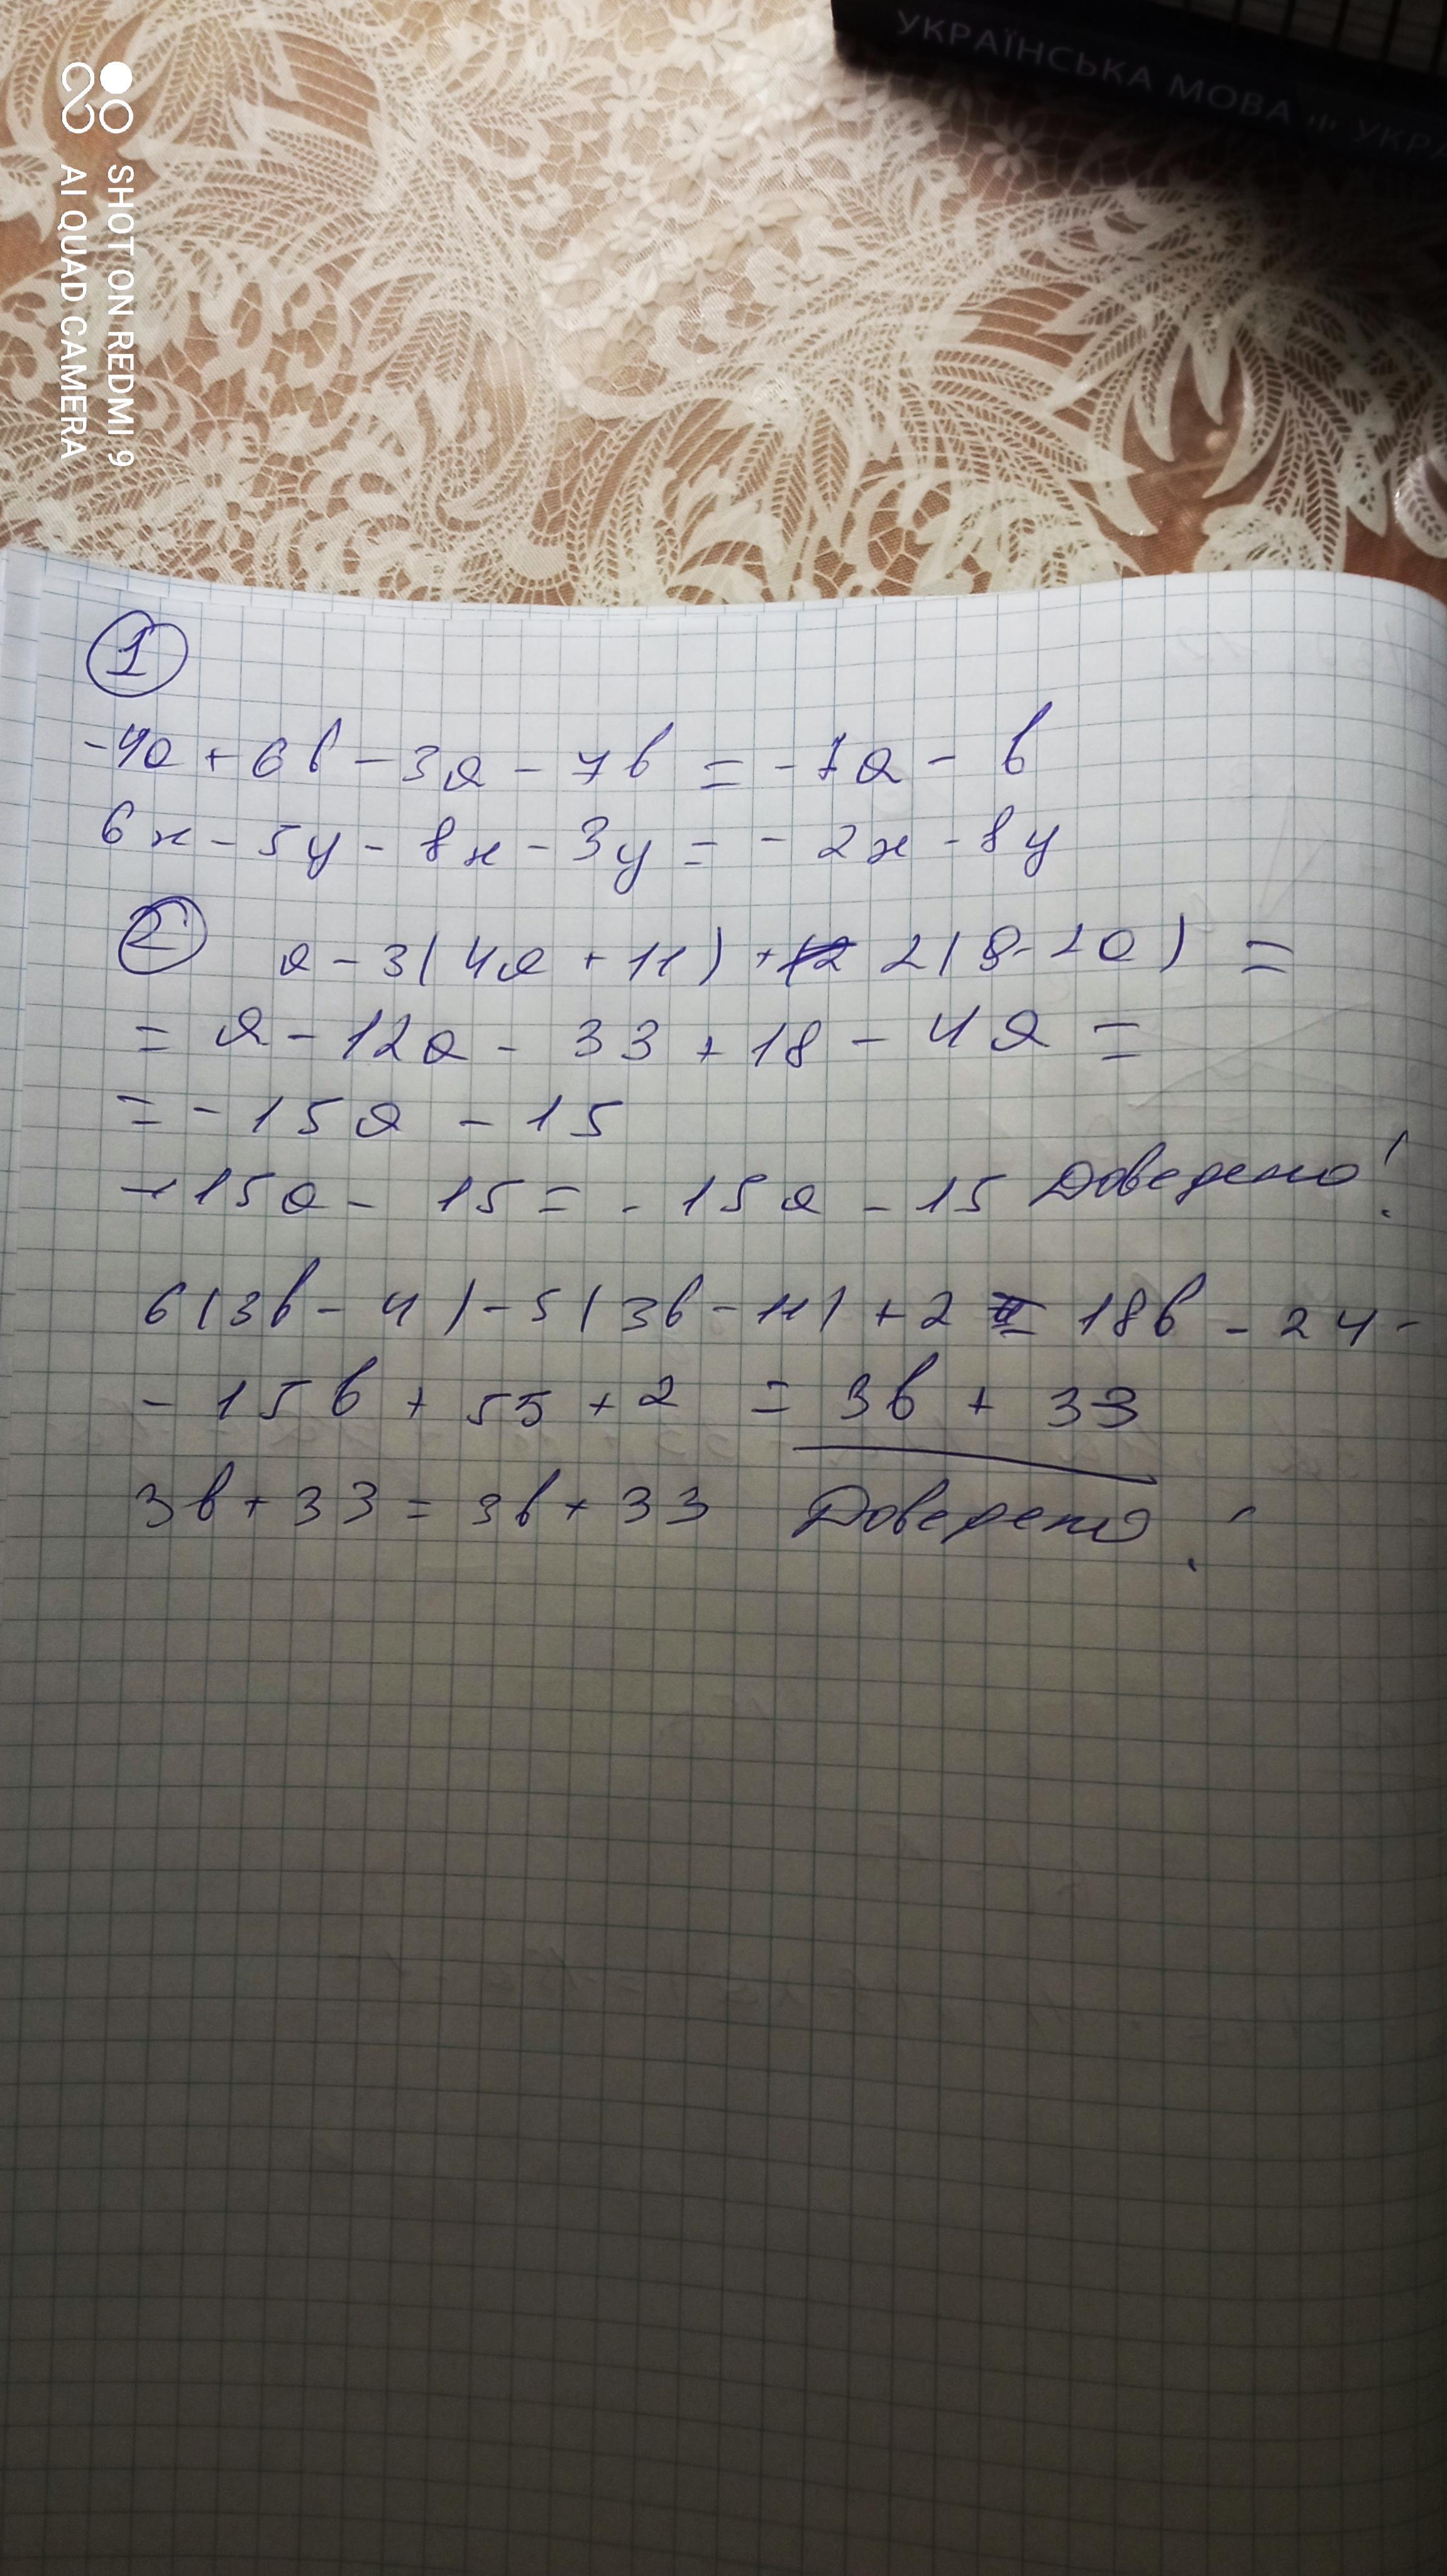 SHOT ON REDMI 9
AI QUAD CAMERA
УКРАЇНСЬКА МОВА
1
-4a + 6b - 3a - 7b = - 7a - b
6x - 5y - 8x - 3y = - 2x - 8y
2 a - 3(4a + 11) + 2(9 - 2a) =
= a - 12a - 33 + 18 - 4a =
= - 15a - 15
- 15a - 15 = - 15a - 15 Доведено!
6(3b - 4) - 5(3b - 11) + 2 = 18b - 24 -
- 15b + 55 + 2 = 3b + 33
3b + 33 = 3b + 33 Доведено!